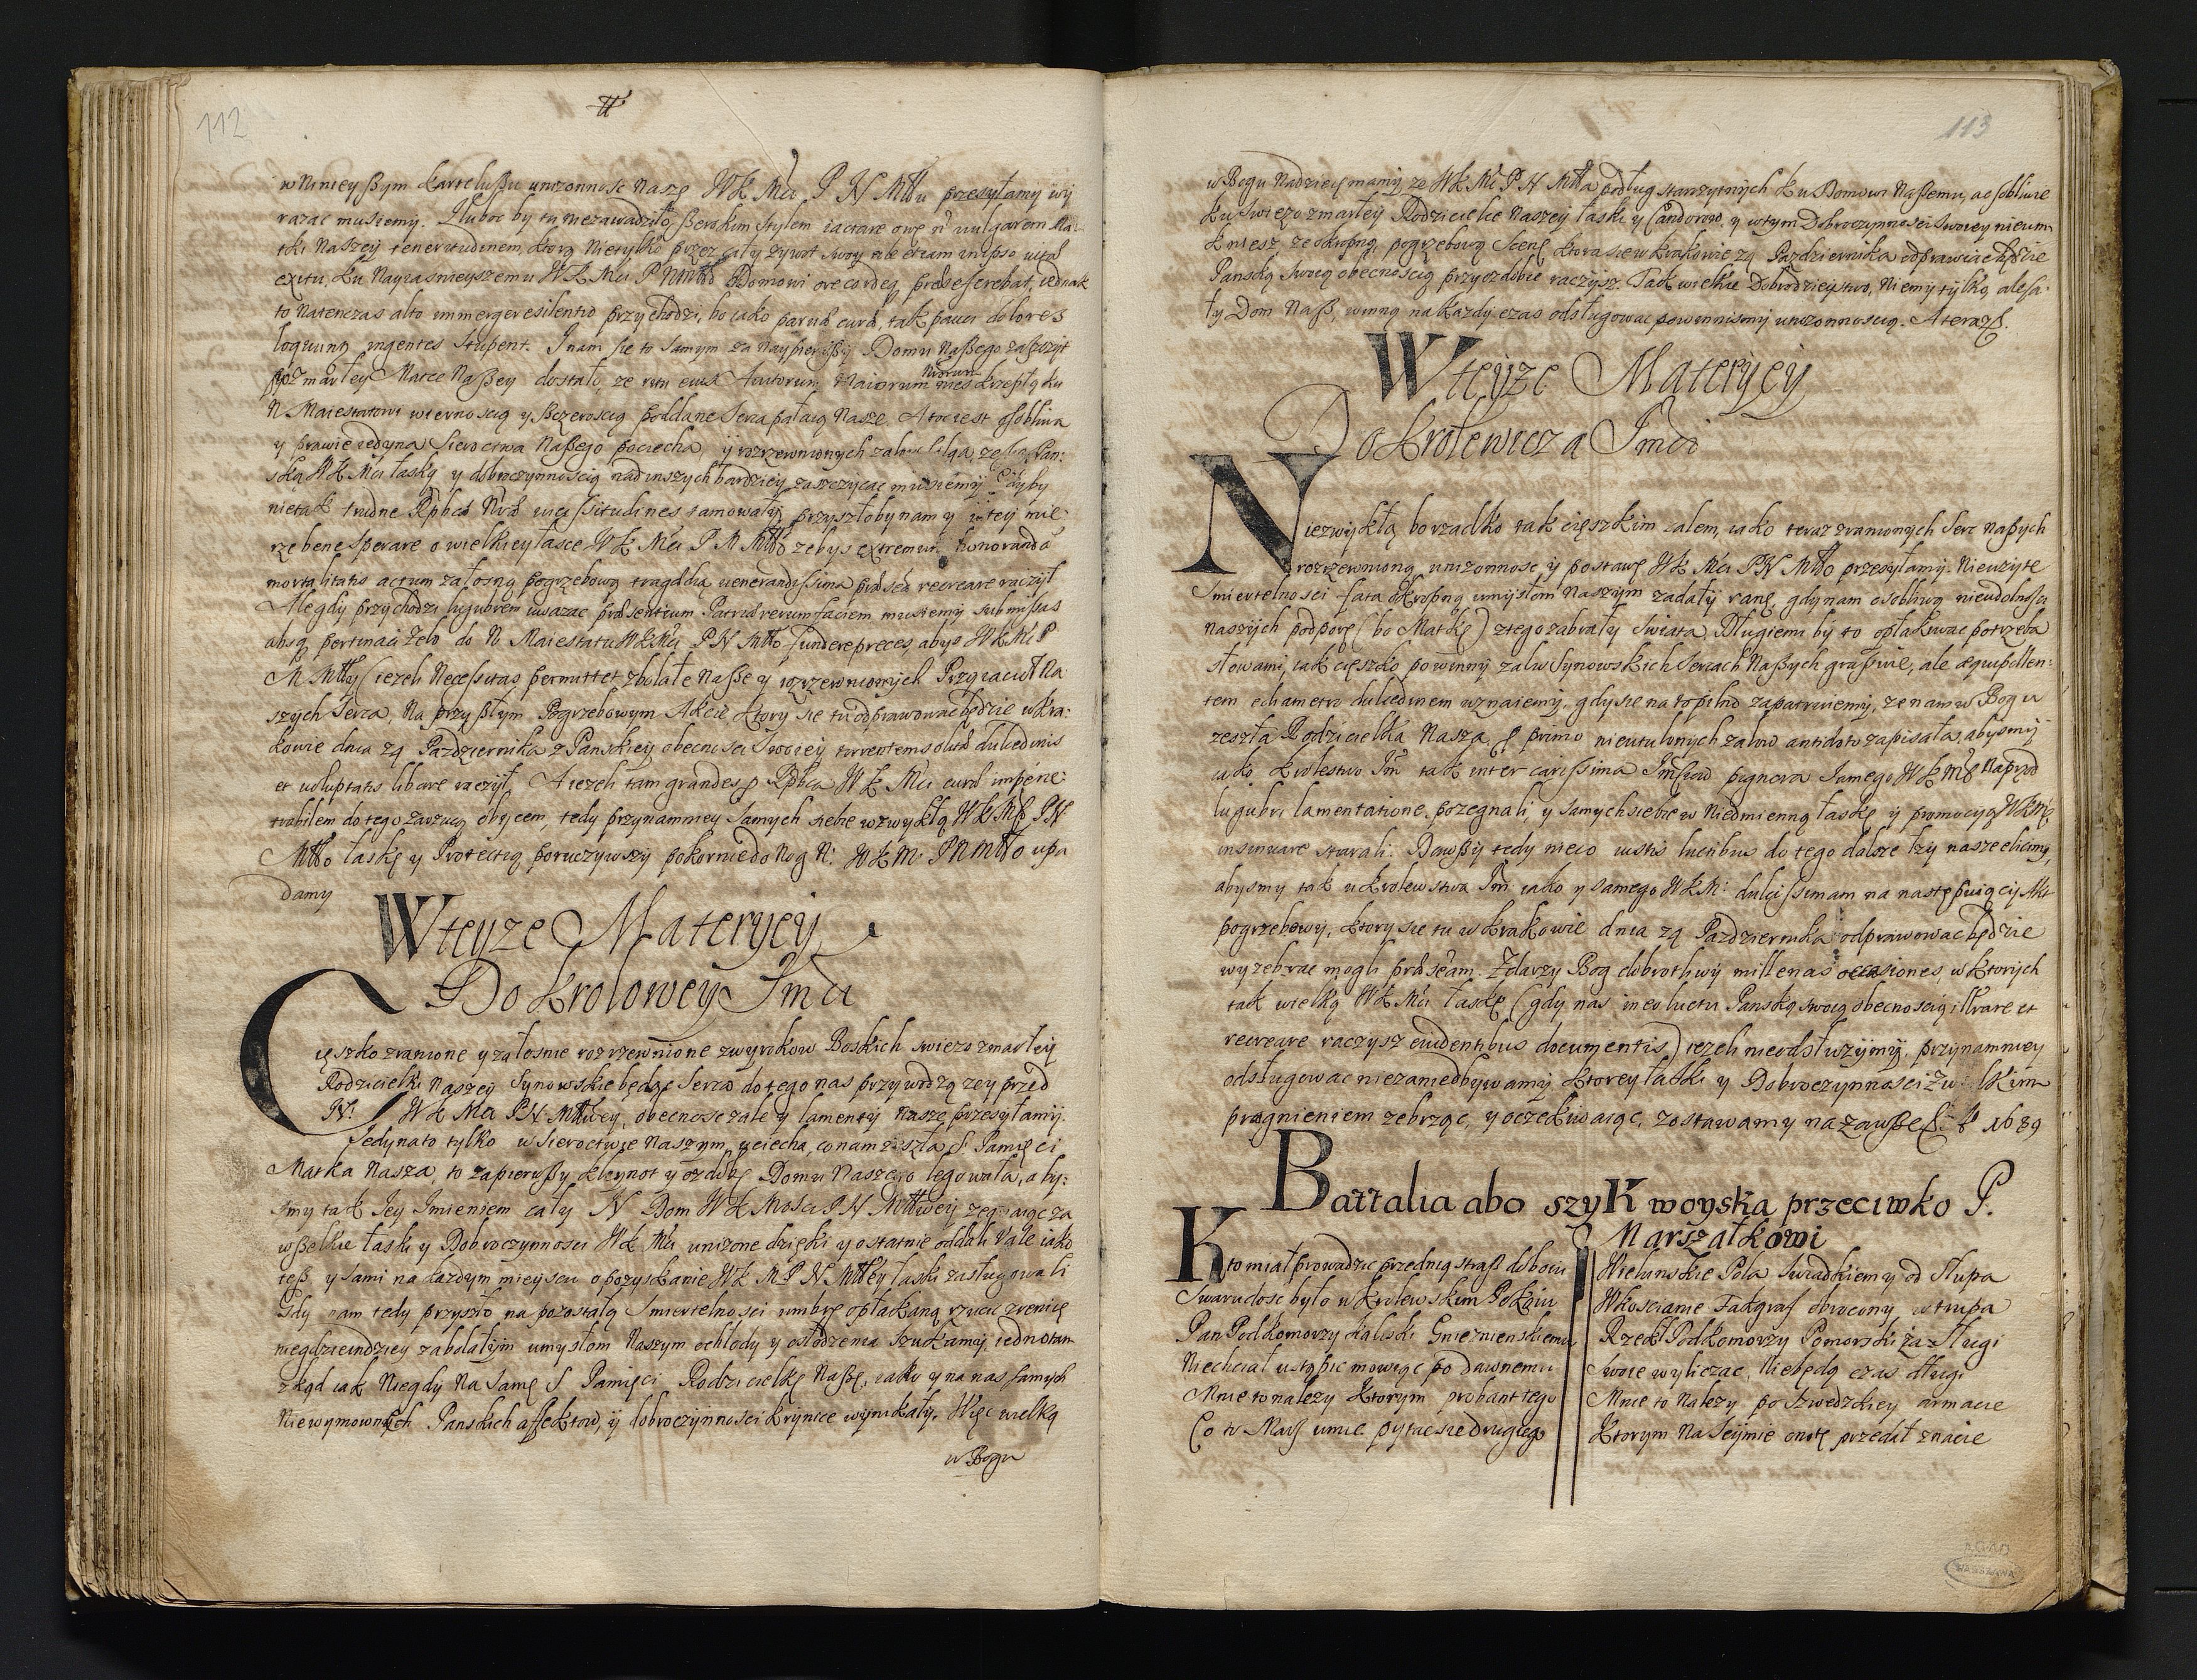 112
w Ninieyszym kartelusżu unizonnosc Naszę WK Mci P N Mttu przesyłamy wy
razac musiemy. Luboc by tu niezawadziło szerokim stylem iactare onę non uulgarem Ma
tki Naszey teneritudinem, ktorą nietylko przez cały zywot swoy ale etiam in ipso uitæ
exitu ku Nayiasnieyszemu WK Mci P N Mttto Domowi præ se ferebat, iednak
to natenczas alto immergere silentio przychodzi, bo iako paruæ curæ, tak pauci dolores
ingentes stupent. I nam sie to samym za naypierwszy Domu Naszego zaszczyt
po zmarłey Matce Naszey dostało, ze ritu eius Autorum Maiorum Nrorum
N Maiestatowi wiernoscią y szczeroscią poddane serca pałaią Nasze. A to iest osobliwa
y prawie iedyna sieroctwa Naszego pociecha, y rozrzewnionych zalow ulga, ze się Pan:
ską WK Mci łaską y dobroczynnoscią nad inszych bardziey zaszczycac musiemy Gdyby
nietak trudne Rpbcæ Nræ uicissitudines tamowały, przyszłoby nam y w tey mie
rze bene sperare o wielkiey łasce WK Mci P N Mttto zebys extremum honorandæ
mortalitatis actum załosną pogrzebową tragædią uenerandissima præsca recreare raczył
Ale gdy przychodzi lugubrem uwazac præsentium Patriæ rerum faciem musiemy submissas
absq pertinaci zelo do N Maiestatu WK Mci P N Mttto fundere preces, abys WK Mc P
N Mttty (iezeli Necessitas permittet) zbolałe Nasze y rozrzewnionych Przyiacioł Na
szych serca, Na przyszłym Pogrzebowym Akcie ktory sie tu odprawowac będzie w Kra:
kowie dnia 24 Pazdziernika z Panskiey obecnosci Swoiey torrentem solitæ dulcedinis
et uoluptatis libare raczył. A iezeli tam grandes Rpbca WK Mci curæ impene:
trabilem do tego zarzucą obicem, tedy przynamniey samych siebie w zwykłą WK Mci P N
Mttto łaskę y Protectią poruczywszy pokornie do Nog N: WK M: P N Mttto upa
damy
W teyze Materyey
Do Krolowey Jmci
Cięszko zranione y załosnie rozrzewnione z wyrokow Boskich swiezo zmarłey
Rodzicielki Naszey Synowskie będąc serca do tego nas przywodzą zey przed
N: WK Mci P N Mtttwey, obecnosc zale y lamenty nasze przesyłamy.
Jedynato tylko w sieroctwie Naszym uciecha, co nam zeszła S Pamięci
Matka Nasza, to zapierwszy kleynot y ozdobę Domu Naszego legowała, aby:
smy tak Jey Imieniem cały N Dom WK Mosci P N Mtttwey zegnaiąc za
wszelkie łaski y Dobroczynnosci WK Mci unizone dzięki y ostatnie oddali Vale iako
tesz y sami na kazdym mieyscu o pozyskanie WK M P N Mttey łaski zasługowali
Gdy nam tedy przyszło na pozostałą smiertelnosci umbrę opłakaną rzucic zrenicę
niegdzieindziey zabolałym umysłom Naszym ochłody y osłodzenia szukamy, iedno tam
zkąd iak Niegdy na samę S Pamięci Rodzicielkę Naszę, iako y na nas samych
Niewymownych Panskich affektow, y dobroczynnosci krynice wynikały. Więc wielką
w Bogu
113
w Bogu Nadzieię mamy, ze WK Mc P N Mttta podług starozytnych ku Domowi Naszemu, a osobliwie
ku swiezo zmarłey Rodzicielce Naszey łaski y Candorow. y w tym Dobroczynnosci swoiey nieum
kniesz, ze okropną pogrzebową Scenę ktora sie w Krakowie 24 Pazdziernika odprawiac będzie
Panską swoią obecnoscią przyozdobic raczysz. Tak wielkie Dobrodzieystwo, Nie my tylko, ale ca:
ły Dom Nasz, winną na kazdy czas odsługowac powinnismy unizonnoscią. A teraz etc.
W teyze Materyey
Do Krolewicza Jmci
Niezwykłą bo rzadko tak cięszkim zalem, iako teraz zranionych serc Naszych
rozrzewnioną unizonnosc y postawę WK Mci P N Mttto przesyłamy. Nieuzyte
smiertelnosci fata okropną umysłom Naszym zadały ranę, gdy nam osobliwą nieudolnosci
naszych podporę (bo Matkę) z tego zabrały swiata. Długiemi by to opłakiwac potrzeba
słowami, iak cięszko powinny zal w Synowskich sercach Naszych grassuie, ale æquipollen:
tem e diametro dulcedinem uznaiemy, gdy sie na to pilno zapatruiemy, ze nam w Bogu
zeszła Rodzicielka Nasza, p primo nieutulonych zalow antidoto zapisała, abysmy
iako Krolestwo Jm tak inter carissima pignora samego WK Mc Naprzod
lugubri lamentatione pozegnali, y samych siebie w Niedmienną łaskę y promocyą WKM:
insinuare starali. Dawszy tedy nieco iustis luctibus do tego dalsze łzy nasze elicimy,
abysmy tak u Krolewstwa Jm iako y samego WKM: dulcissimam na następuiący Akt
pogrzebowy, ktory sie tu w Krakowie dnia 24 Pazdziernika odprawowac będzie
wyzebrac mogli præscam. Zdarzy Bog dobrotliwy millenas occasiones, w ktorych
tak wielką WK Mci łaskę (gdy nas in eo luctu Panską swoią obecnoscią illustrare et
recreare raczysz euidentibus documentis) iezeli nieodsłuzymy, przynamniey
odsługowac niezaniedbywamy, ktorey łaski y Dobroczynnosci z wielkim
pragnieniem zebrząc, y oczekiwaiąc, zostawamy na zawsze etc. 1689
Battalia abo szyk woyska przeciwko P.
Marszałkowi
Kto miał prowadzic przednią straż do boiu
Swarudosc było w Krolewskim Pokoiu
Pan Podkomorzy Kaliski Gnieznienskiemu
Niechciał ustąpic mowiąc po dawnemu
Mnie to nalezy ktorym probant tego
Co to Mars umie pytac sie drugiego
Wielunskie Pola swiadkiem y od słupa
W kosciami Fakgraf obrocony w trupa
Rzekł Podkomorzy Pomorski za sługi
Swoie wyliczac, niebędę czas długi
Mnie to nalezy po szwedzkiey armacie
Ktorym na seymie onotę przedał znacie
AGAD
WARSZAWA